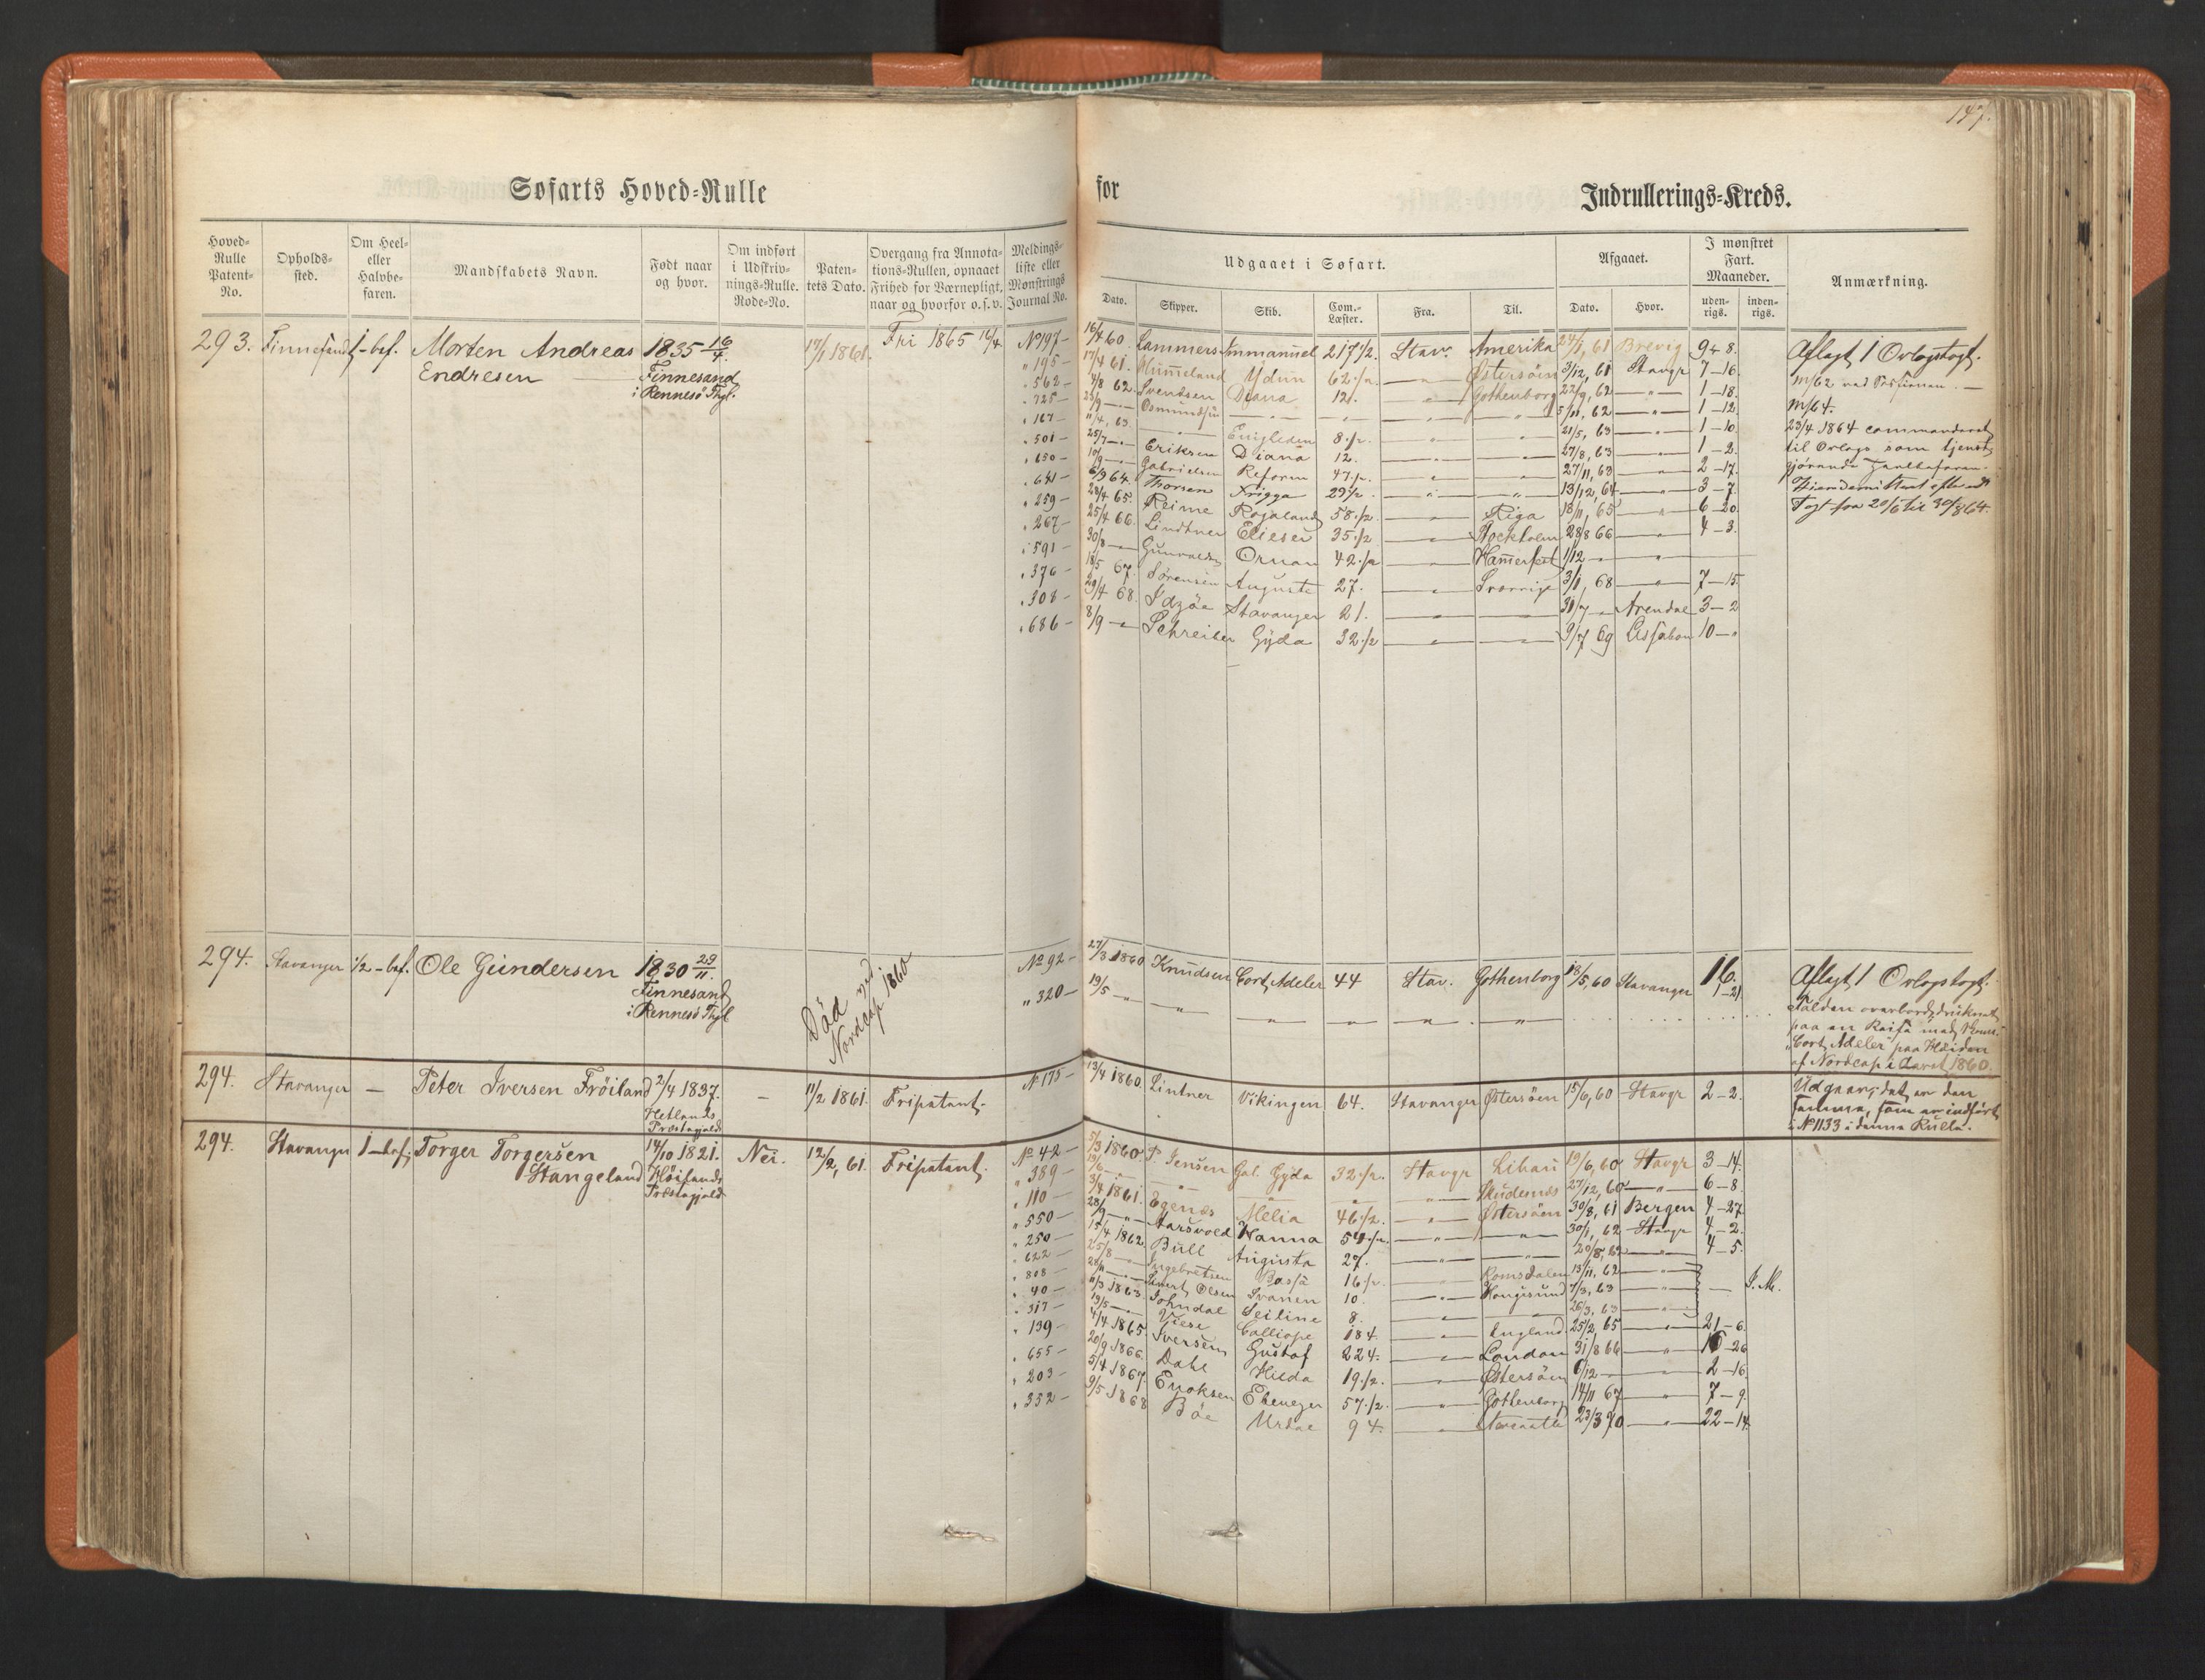 147.
Søfarts Hoved-Rulle for Indrullerings-Kreds.
Hoved-Rulle Patent-No. Opholds-sted. Om Heel- eller Halvbe-faren. Mandskabets Navn. Født naar og hvor. Om indført i Udskriv-nings-Rulle. Rode-No. Paten-tets Dato. Overgang fra Annota-tions-Rullen, opnaaet Frihed for Værnepligt, naar og hvorfor o.s.v. Meldings-liste eller Mønstrings Journal No.
Udgaaet i Søfart. Afgaaet. I mønstret Fart. Maaneder. Anmærkning.
Dato. Skipper. Skib. Com.-Læster. Fra. Til. Dato. Hvor. uden-rigs. inden-rigs.
293. Finnesand 1-bef. Morten Andreas 1835 16/4. 17/1 1861. Fri 1865 16/4 No 197-
Endresen Finnesand
i Rennesö Thgl.
16/4 60. Lammers Immanuel 217 1/2. Stav. Amerika 24/1, 61 Brevig 9+8. Aflagt 1 Orlogstogt.
" 195- 17/4 61. Hummeland Ydun 62 1/2. Østersöen 3/12, 61 Stavgr 7-16.
" 562- 4/8 62. Svendsen Diana 12. Gothenborg 22/9, 62 1-18.
" 725- 25/9 Osmundsen 5/11, 62 1-12. M/64.
" 167- 11/4, 63. Enigheden 8 1/2. 21/5, 63 1-10. 23/4 1864 commanderet
" 501- 25/7 Eriksen Diana 12. 27/8, 63 1-2. til Orlogs som tjenst
" 650- 10/9 Gabrielsen Reform 47 1/2. 27/11, 63 2-17.
" 641- 6/9 64. Thorsen Frigga 29 1/2. 13/12, 64 3-7.
" 259- 28/4 65. Reime Rogaland 58 1/2. Riga 18/11, 65 6-20. Togt fra 20/6 til 30/8 64.
" 267- 25/4 66. Lindtner Elieser 35 1/2 Stockholm 28/8 66 4-3.
" 591- 30/8 Gunvalds Ornan 42 1/2 Hamerfest 1/12
" 376- 18/5 67. Sørensen Auguste 27. Sverrige 3/1, 68 7-15
" 308- 29/4 68. Idzøe Stavanger 21. 31/7 Arendal 3-2
" 686- 8/9 Schreiber Gyda 32 1/2 9/7 69 Lissabon 10-"
294. Stavanger 1/2-bef. Ole Gundersen 1830 29/11. Död ved No 92-
Finnesand Nordcap 1860 " 320-
i Rennesö Thgl
27/3 1860 Knudsen Cort Adeler 44 Stav. Gothenborg 18/5, 60 Stavanger 1-21 Aflagt 1 Orlogstogt.
19/5 Falden overbord, druknet
paa en Reise med
"Cort Adeler" paa Höiden
af Nordcap i Aaret 1860.
294. Stavanger — Peter Iversen Fröiland 2/4 1837. - 11/2 1861. Fripatent. No 175-
Hetlands
Præstegjeld
13/4 1860. Lintner Vikingen 64. Stavanger Østersöen 15/6, 60 Stavgr 2-2. Udgaar, det er den
samme, som er indfört
i No 1133 i denne Rulle.
294. Stavanger 1-bef. Torger Torgersen 14/10 1821. Nei. 12/2, 61. Fripatent. No 42-
Stangeland Höilands
Præstegjeld
5/3 1860 P. Jensen Gal. Gyda 32 1/2. Stavgr Libau 19/6, 60 Stavgr 3-14.
" 389- 19/6 Skudenæs 27/12, 60 6-8.
" 110- 3/4 1861. Egenæs Melia 46 1/2. Østersöen 30/8, 61 Bergen 4-27.
" 550- 28/9 Aarsvold Hanna 54 1/2. 30/1, 62 Stavgr 4-2.
" 250- 15/4 1862 Bull Augusta 27. 20/8, 62 4-5.
" 622- 25/8 Ingebretsen 16 1/2. Romsdalen 13/11, 62
" 808- 28/11 Olsen Svanen 10. Haugesund 7/3, 63 I. M.
" 40- 11/3 1863. Johndal Seiline 8. 26/3, 63
" 317- 19/5 Calliope 184. England 25/2 65 21-6.
" 139- 4/4 1865. Iversen Gustaf 224. London 31/8 66 16-26
" 655- 20/9 1866. Dahl Hilda 19 1/2. Østersöen 6/12 2-16.
" 203- 5/4 1867. Enoksen Ebenezer 57 1/2. Gothenborg 14/11 67 7-9.
" 332- 9/5 1868 Böe 94. 23/3 70 22-14.